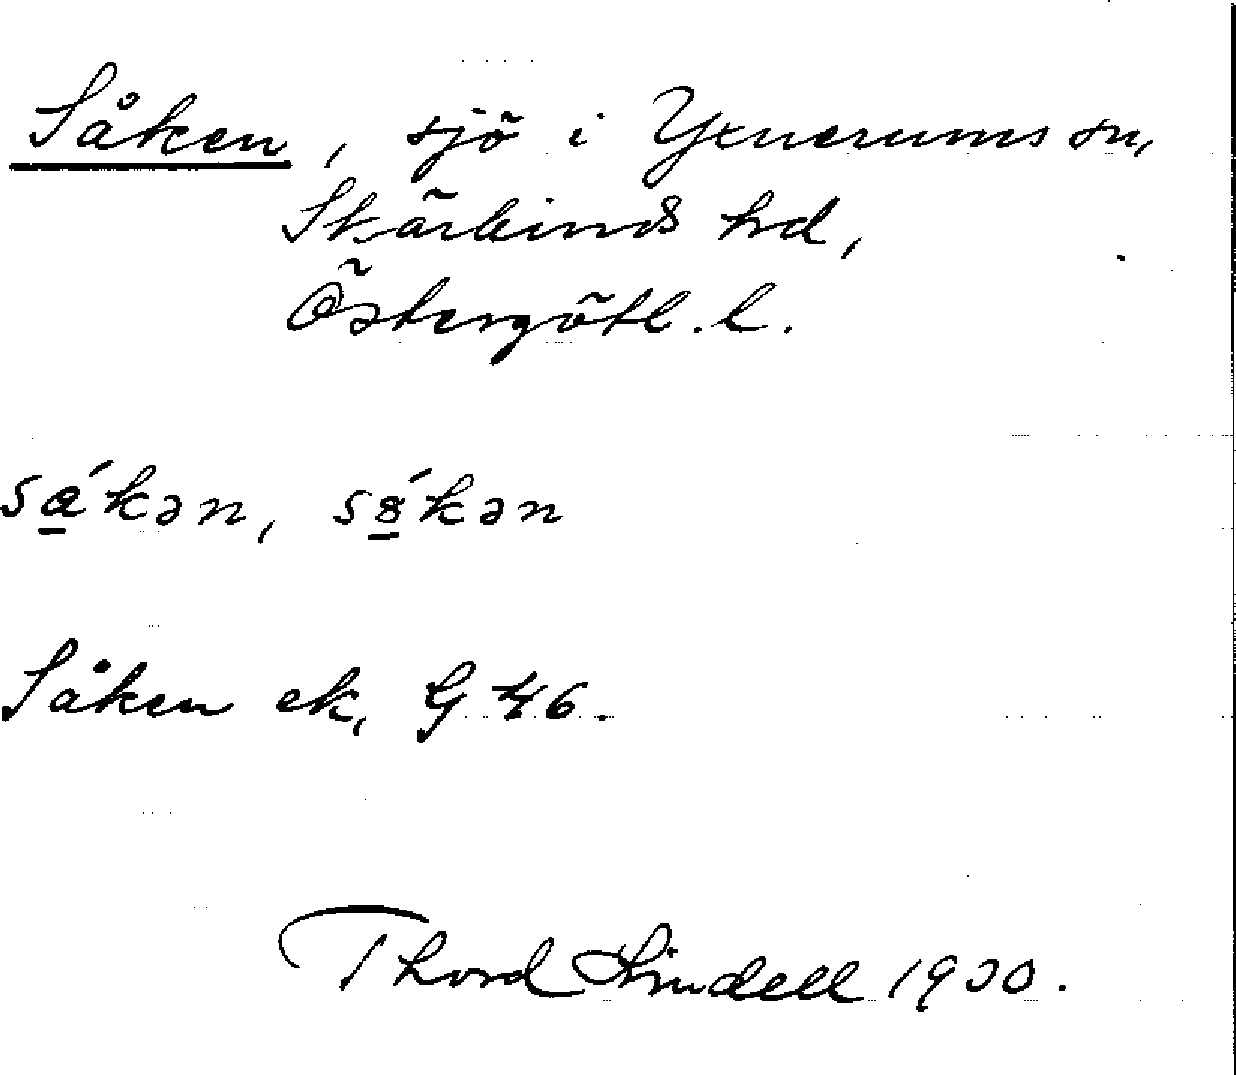 Såken, sjö i Yxnerums sn,
Skärkinds hd,
Östergötl. l.
Såken ek, G 46.
Thord Lindell 1930.